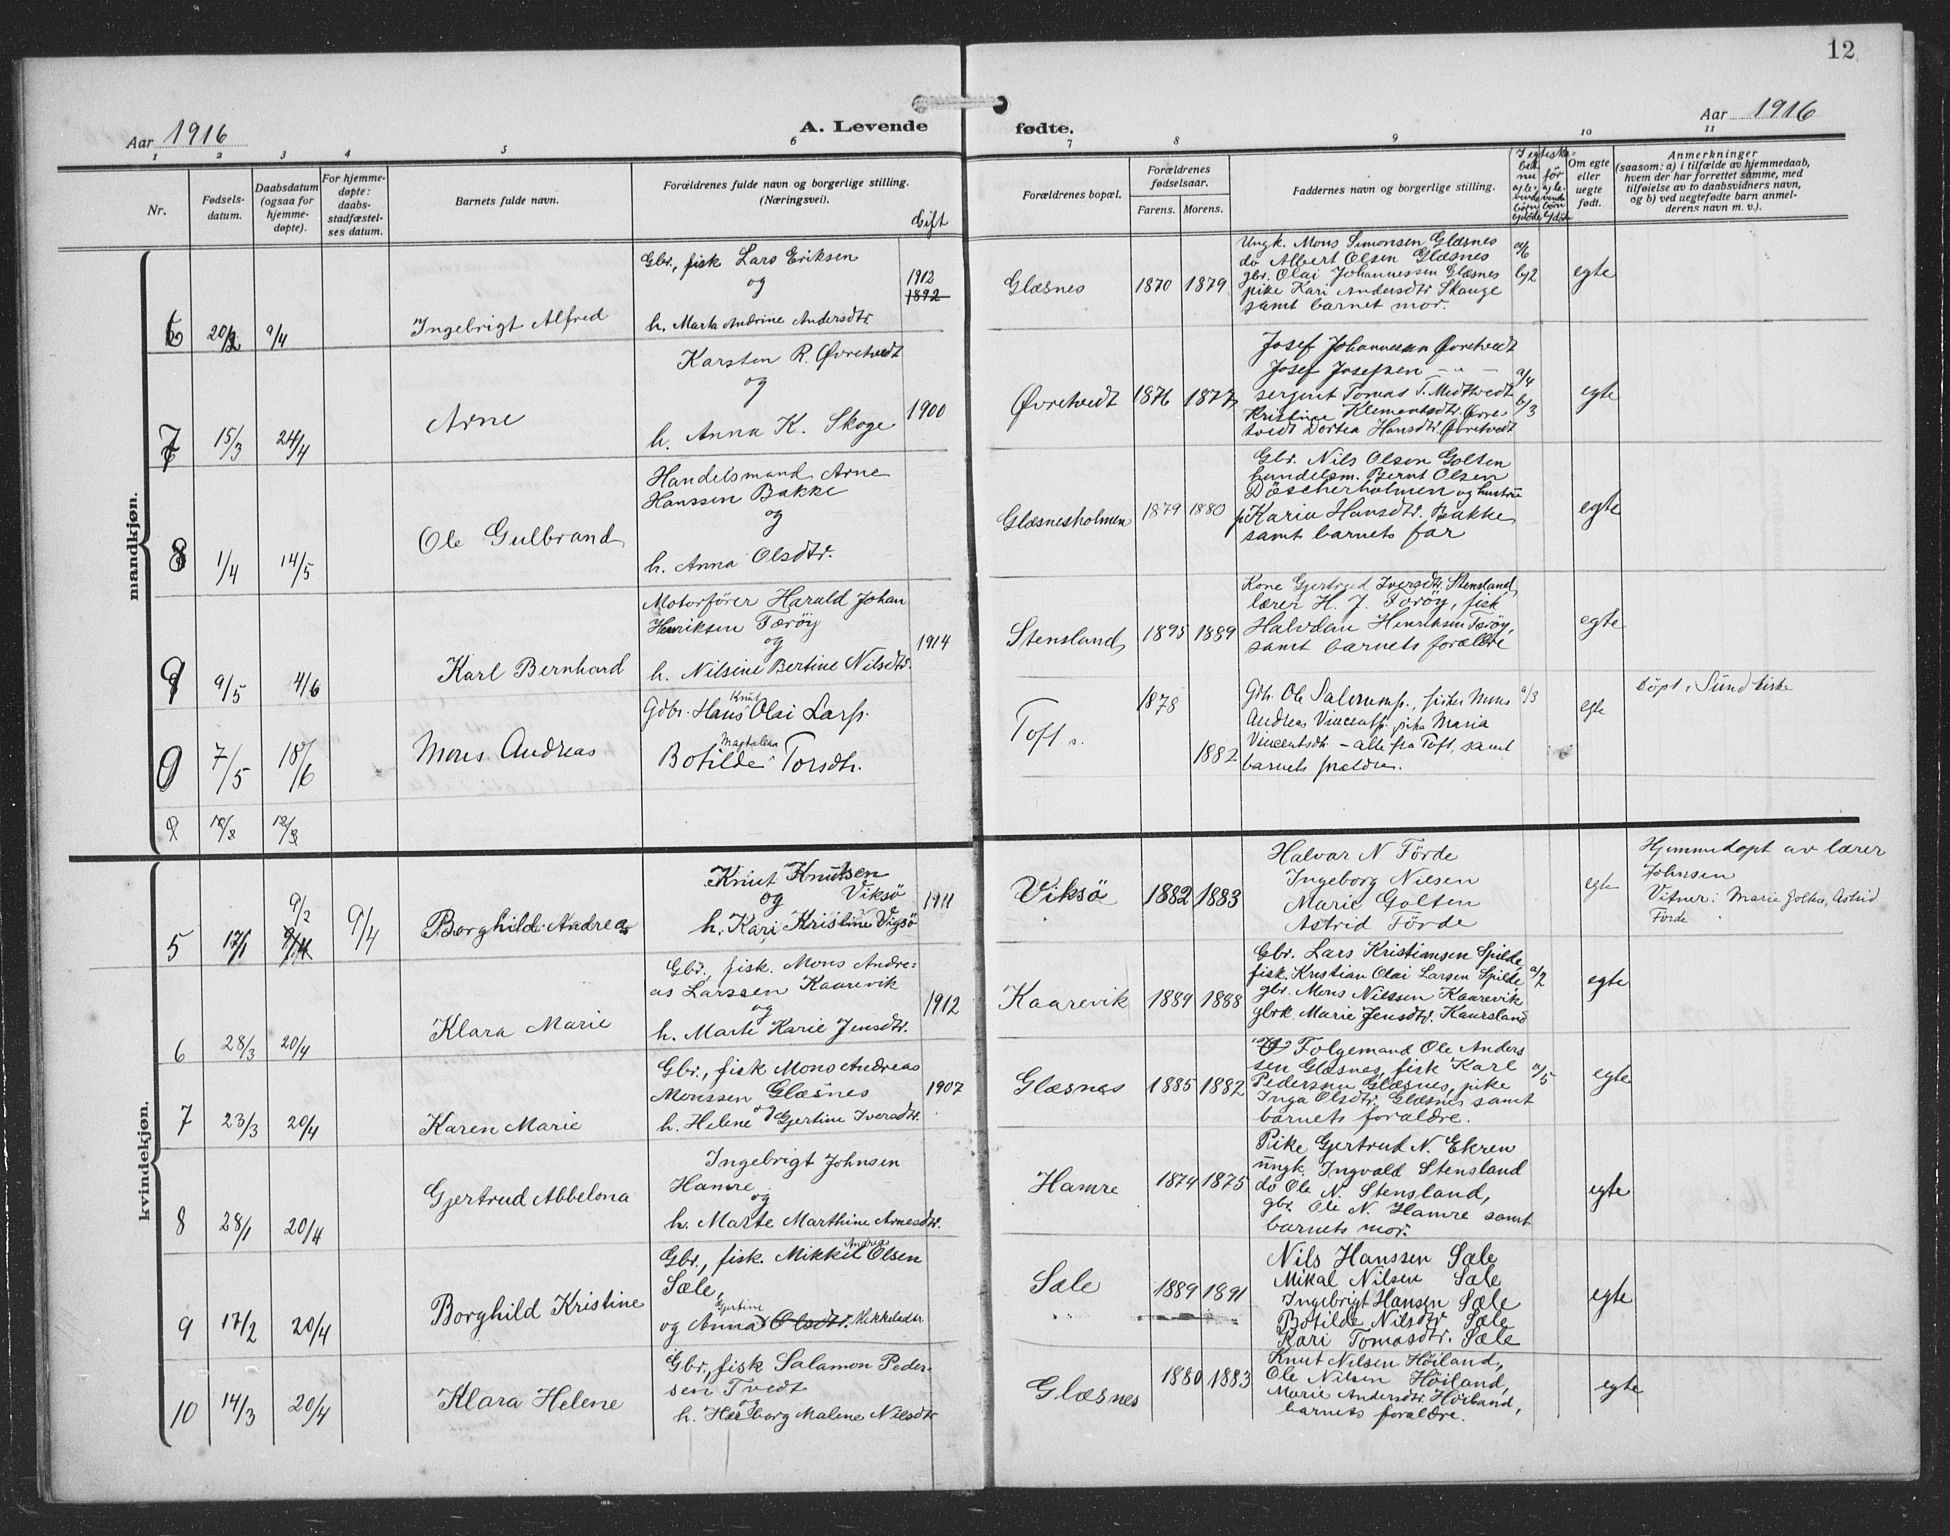 12
Aar 1916
A. Levende
fødte.
Aar 1916
1 2 3 4 5 6 7 8 9 10 11
Nr.
Fødsels-
datum.
Daabsdatum
(ogsaa for
hjemme-
døpte).
For hjemme-
døpte:
daabs-
stadfæstel-
ses datum.
Barnets fulde navn.
Forældrenes fulde navn og borgerlige stilling.
(Næringsvei).
Gift
Forældrenes bopæl.
Forældrenes
fødselsaar.
Farens. Morens.
Faddernes navn og borgerlige stilling.
Om egte
eller
uegte
født.
Anmerkninger
(saasom: a) i tilfælde av hjemmedaab,
hvem der har forrettet samme, med
tilføielse av to daabsvidners navn,
og b) ved uegtefødt barn anmel-
derens navn m. v.).
mandkjøn.
6 20/2 9/4
Ingebrigt Alfred
Gbr., fisk Lars Eriksen
og
h. Marta Andrine Andersdtr.
1912
1892
Glæsnes
1870 1879
Ungk. Mons Simonsen Glæsnes
do Albert Olsen Glæsnes
gbr. Olai Johannessen Glæsnes
pike Kari Andersdtr Skauge
samt barnet mor.
a/6
b/2
egte
7 15/3 24/4
Arne
Karsten R. Øvretvedt
og
h. Anna K. Skoge
1900
Øvretvedt
1876 1877
Josef Johannessen Øvretvedt
Josef Josefsen - " -
serjent Tomas T. Midttvedt
Kristine Klementsdtr. Øvre-
tvedt Dortea Hansdtr. Øvretvedt
a/4
b/3
egte
8 1/4 14/5
Ole Gulbrand
Handelsmand Arne
Hanssen Bakke
og
h. Anna Olsdtr.
Glæsnesholmen
1879 1880
Gbr. Nils Olsen Golten
handelsm. Bernt Olsen
Döscherholmen og hustru
p. Karia Hansdtr. Bakke
samt barnets far
egte
9 9/5 4/6
Karl Bernhard
Motorfører Harald Johan
Henriksen Færöy
og
h. Nilsine Bertine Nilsdtr.
1914
Stensland
1895 1889
Kone Gjertrud Iversdtr. Stensland
lærer H. J. Toröy, fisk
Halvdan Henriksen Færöy,
samt barnets forældre
egte
0 7/5 18/6
Mons Andreas
Knut
Gdbr. Hans Olai Larss.
Magdalena
Botilde Torsdtr.
Toft
1878
1882
Gdbr. Ole Salomons., fisker Mons
Andreas Vincents. pike Maria
Vincentsdtr. - alle fra Toft, samt
barnets forældre.
a/3
egte
Döpt i Sund kirke
kvindekjøn.
5 17/1 9/2 9/4
Borghild Andrea
Knut Knutsen
Viksö
og
h. Kari Kristine Vigsö
1911
Viksö
1882 1883
Halvar N Förde
Ingeborg Nilsen
Marie Golten
Astrid Förde
egte
Hjemmedopt av lærer
Johnsen
Vitner: Marie Golten, Astrid
Förde
6 28/3 20/4
Klara Marie
Gbr., fisk. Mons Andre:
as Larssen Kaarevik
og
h. Marte Karie Jensdtr.
1912
Kaarevik
1889 1888
Gbr. Lars Kristiansen Spilde,
fisk. Kristian Olai Larsen Spilde,
gbr. Mons Nilssen Kaarevik
gbrk. Marie Jensdtr. Kaursland
a/2
egte
7 23/3 20/4
Karen Marie
Gbr., fisk Mons Andreas
Monssen Glæsnes
og
h. Helene Gjertine Iversdtr.
1907
Glæsnes
1885 1882
Folgemand Ole Anders
sen Glæsnes, fisk Karl
Pedersen Glæsnes, pike
Inga Olsdtr. Glæsnes samt
barnets forældre.
a/5
egte
8 28/1 20/4
Gjertrud Abbelona
Ingebrigt Johnsen
Hamre
og
h. Marte Marthine Arnesdtr.
Hamre
1874 1875
Pike Gjertrud N. Ekren
ungk. Ingvald Stensland
do Ole N. Stensland,
gbr. Ole N. Hamre samt
barnets mor.
egte
9 17/2 20/4
Borghild Kristine
Andreas
Gbr., fisk. Mikkel Olsen
Sæle,
Gjertine
og Anna Olsdtr. Mikkelsdtr.
Sæle
1889 1891
Nils Hanssen Sæle
Mikal Nilsen Sæle
Ingebrigt Hansen Sæle
Botilde Nilsdtr Sæle
Kari Tomasdtr. Sæle
egte
10 14/3 20/4
Klara Helene
Gbr., fisk Salamon Peder-
sen Tvedt
og
h. Herborg Malene Nilsdtr
Glæsnes
1880 1883
Knut Nilsen Höiland,
Ole Nilsen Höiland,
Marie Andersdtr. Höiland,
barnets forældre.
egte